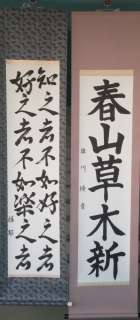 春山草木新
知之者不如好之者
好之者不如樂之者